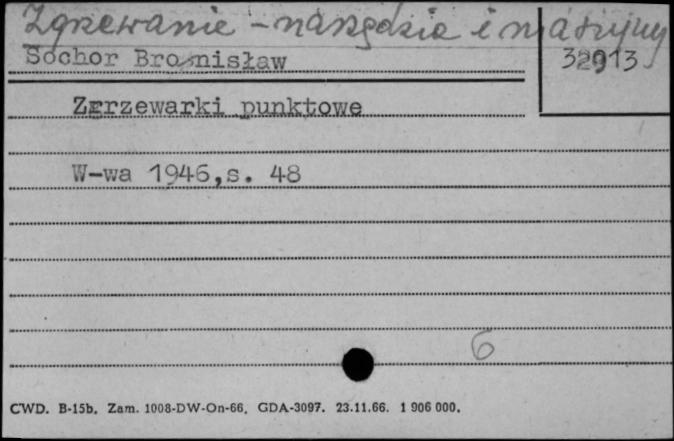 Zgrzewanie - narzędzia i maszyny
Sochor Bronisław
32913
Zgrzewarki punktowe
W-wa 1946,s. 48
6
CWD. B-15b. Zam. 1008-DW-On-66. GDA-3097. 23.11.66. 1 906 000.